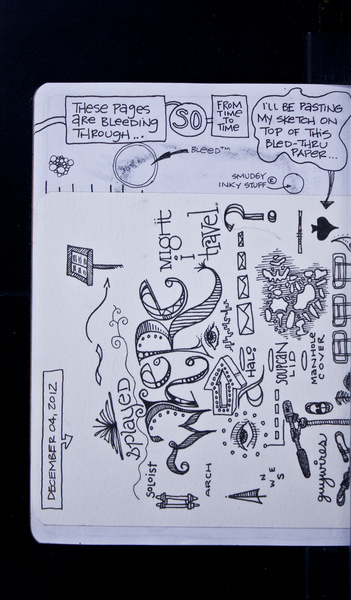 THESE PAGES
ARE BLEEDING
THROUGH...
SO
FROM
TIME
TO
TIME
I'LL BE PASTING
MY SKETCH ON
TOP OF THIS
BLED-THRU
PAPER...
BLEED™
SMUDGY®
INKY STUFF
DECEMBER 04, 2012
splayed
WHERE
Might
i
travel
?
SOLOIST
ARCH
HALO
&
N
E
W
S
SOUPCAN
LID
MANHOLE
COVER
guywires